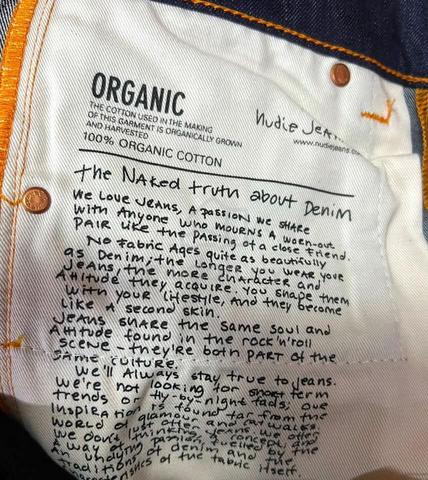 ORGANIC
THE COTTON USED IN THE MAKING
OF THIS GARMENT IS ORGANICALLY GROWN
AND HARVESTED
100% ORGANIC COTTON
Nudie Jean
www.nudiejeans.co
the Naked truth about Denim
We love jeans, a passion we share
with anyone who mourns a worn-out
pair like the passing of a close friend.
No fabric ages quite as beautifully
as denim; the longer you wear your
jeans, the more character and
attitude they acquire. You shape them
with your lifestyle, and they become
like a second skin.
Jeans share the same soul and
attitude found in the rock'n'roll
scene - they're both part of the
same culture.
We'll always stay true to jeans.
We're not looking for short term
trends or fly-by-night fads; our
inspiration is found far from the
world of glamour and catwalks.
We don't just offer jeans, we offer
a way of thinking, a concept and
an undying passion, fuelled by the
traditions of denim and the
characteristics of the fabric itself.